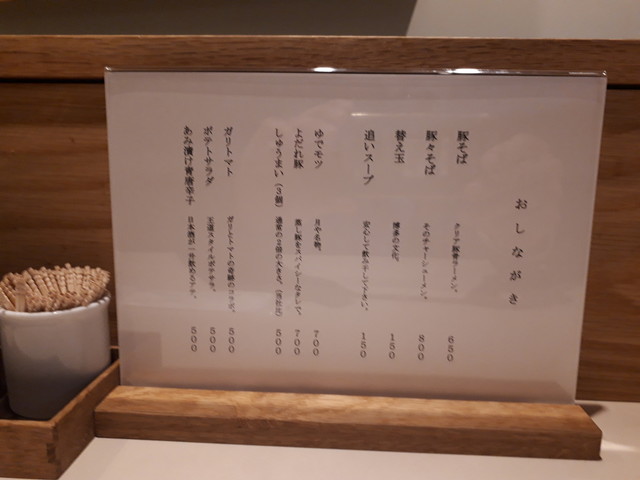 おしながき
豚そば クリア豚骨ラーメン。 650
豚々そば そのチャーシューメン。 800
替え玉 博多の文化。 150
追いスープ 安心して飲み干して下さい。 150
ゆでモツ 月や名物。 700
よだれ豚 蒸し豚をスパイシーなタレで。 700
しゅうまい（3個） 通常の2倍の大きさ。（当社比） 500
ガリトマト ガリとトマトの奇跡のコラボ。 500
ポテトサラダ 王道スタイルポテサラ。 500
あみ漬け青唐辛子 日本酒が一升飲めるアテ。 500